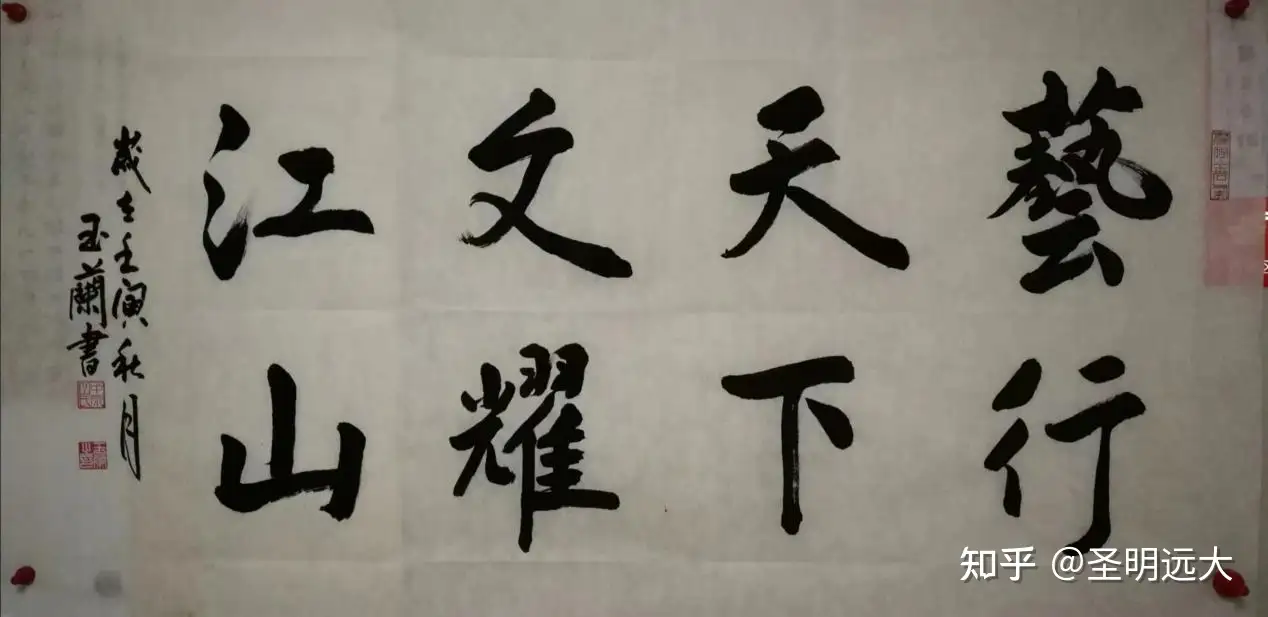 藝行
天下
文耀
江山
歲在壬寅秋月
玉蘭書
知乎 @圣明远大